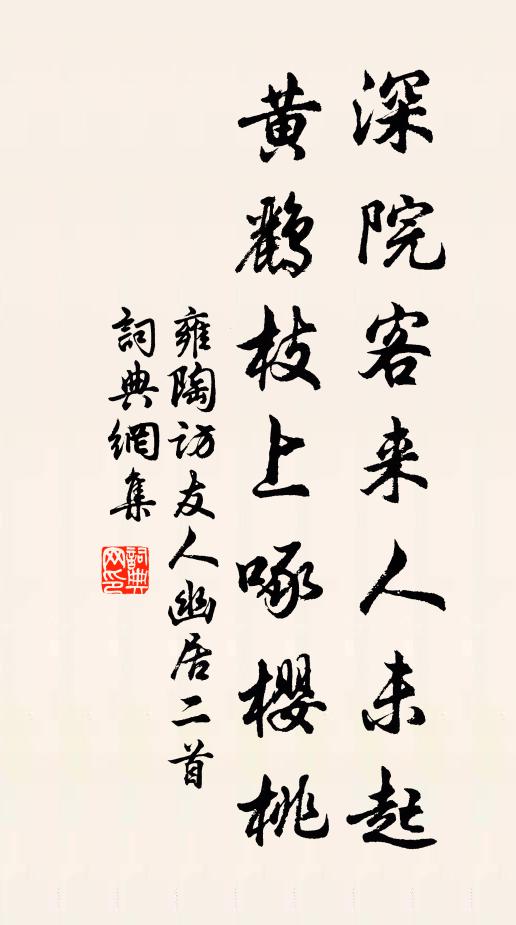 深院客来人未起
黄鹂枝上啄樱桃
雍陶访友人幽居二首
詞典網集
詞典网印